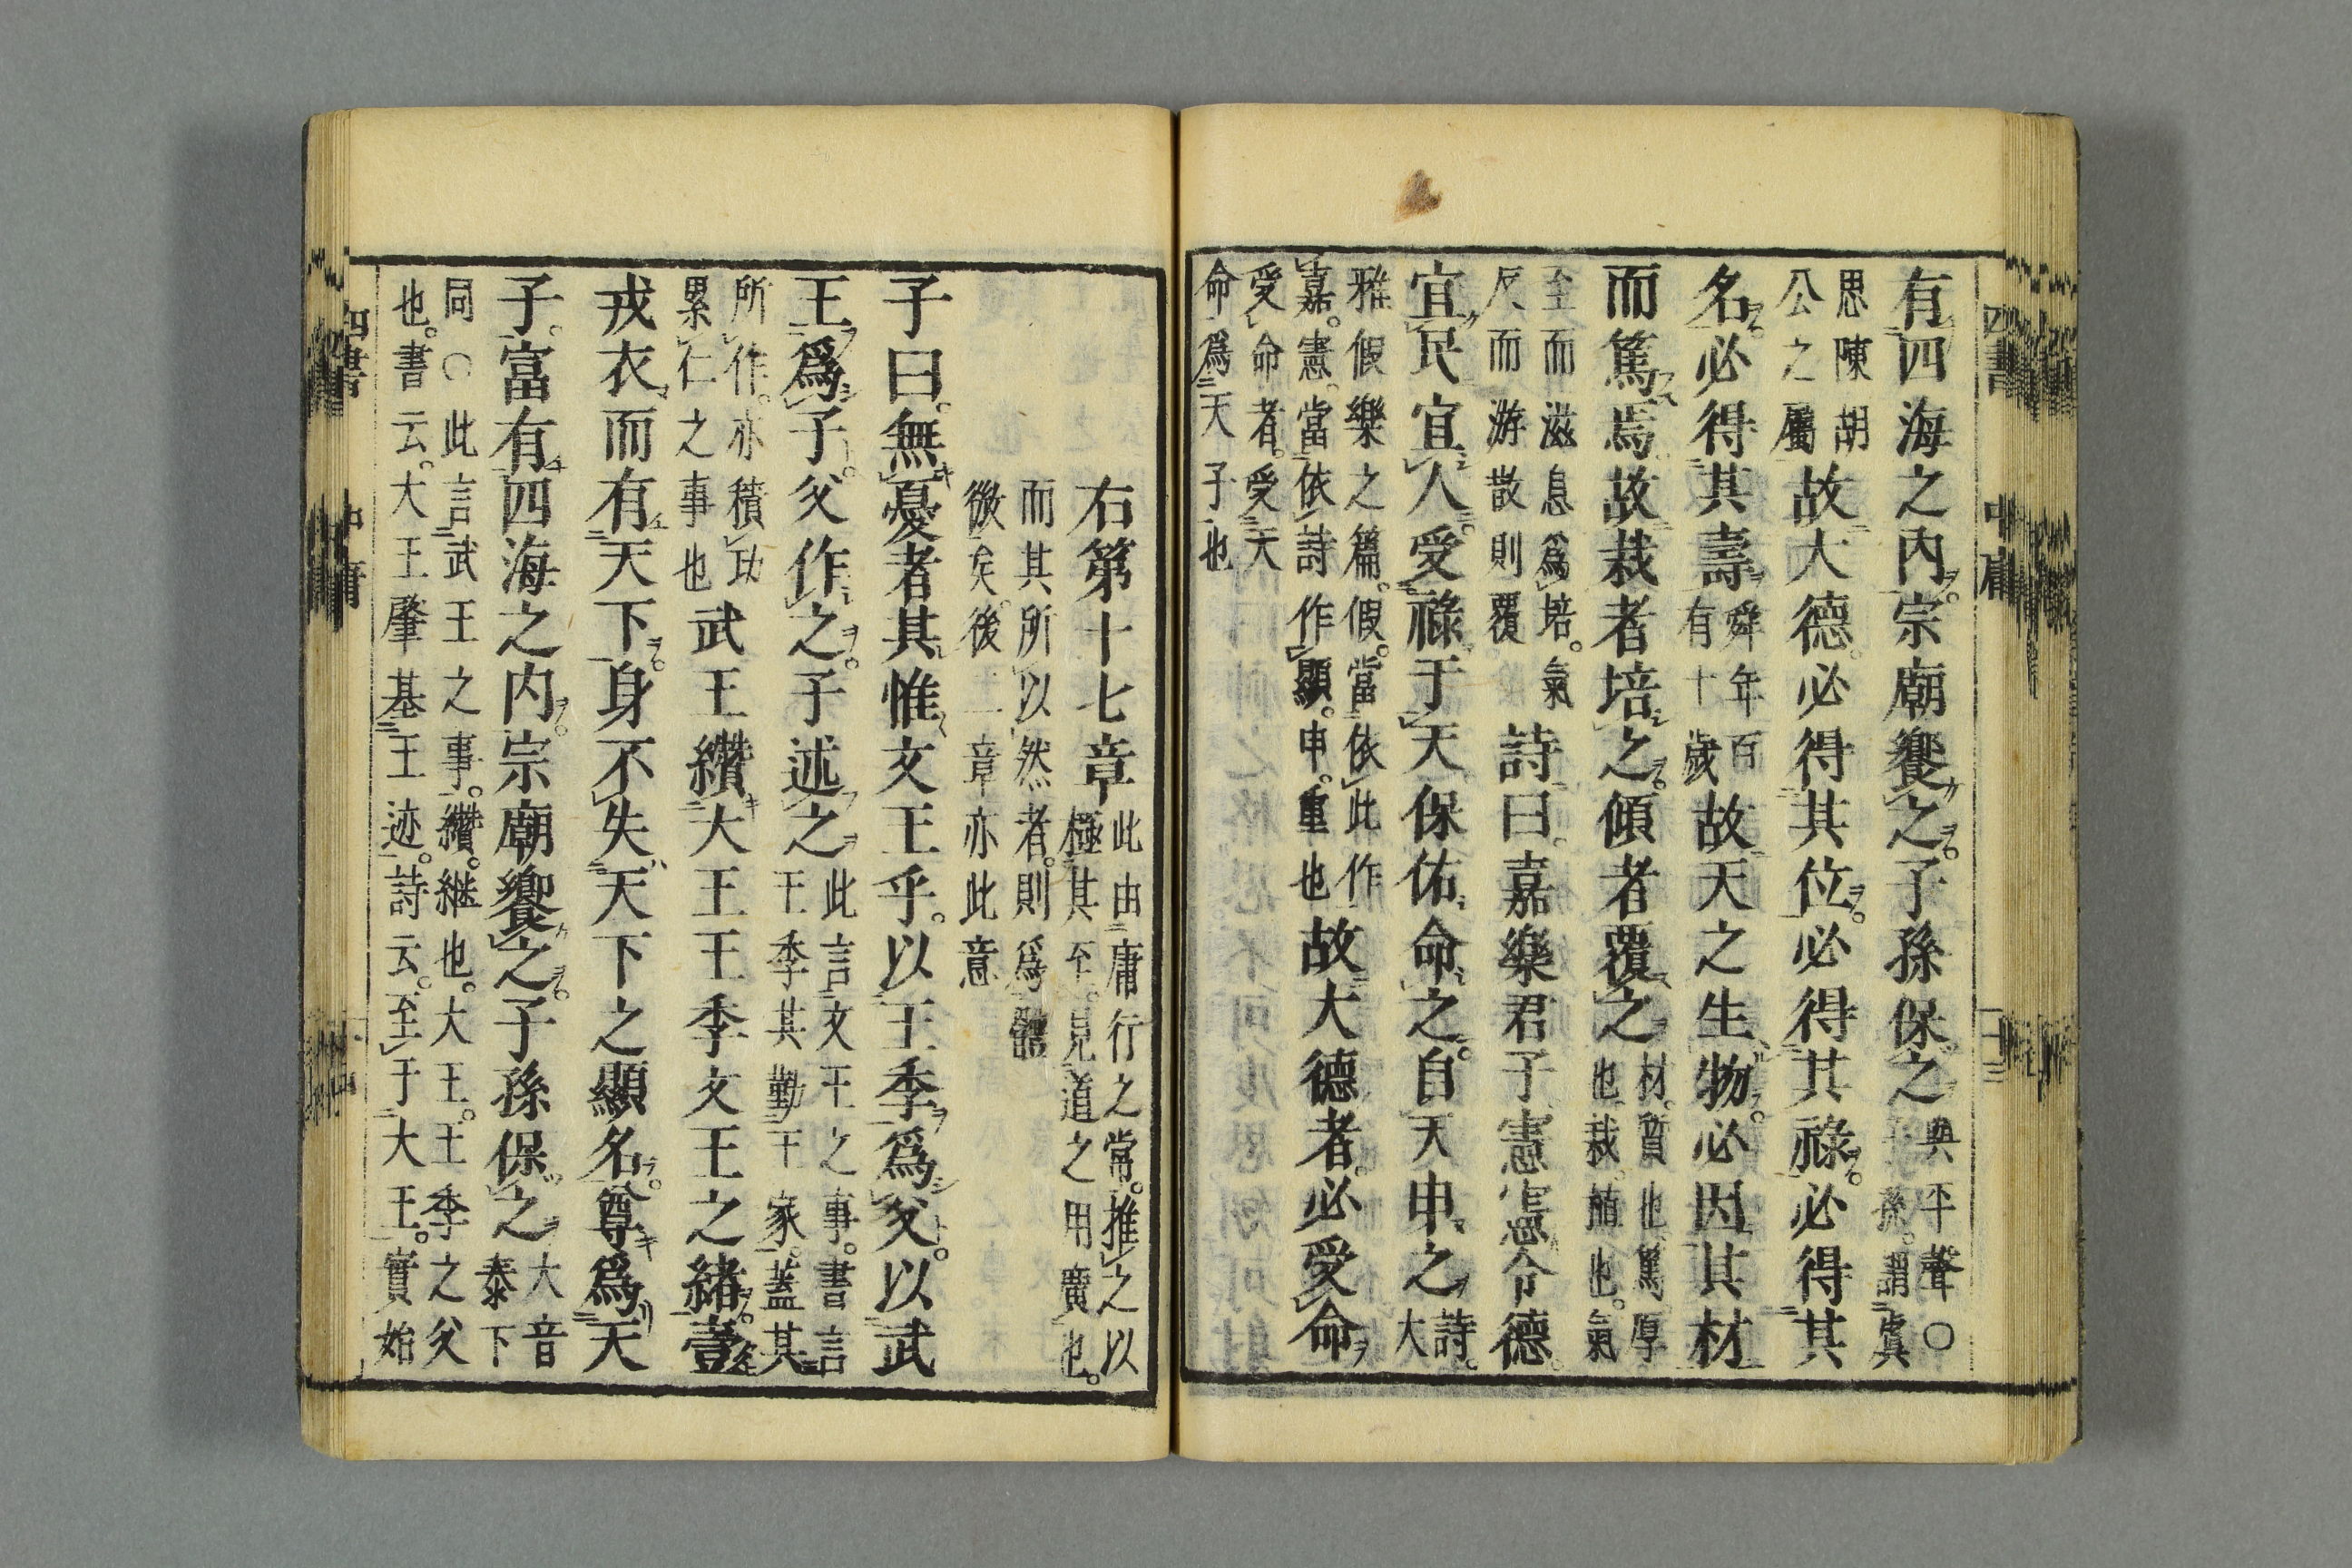 有四海之內宗廟饗之子孫保之與平聲○
子孫謂虞
思陳胡
公之屬故大德必得其位必得其祿必得其
名必得其壽舜年百
有十歲故天之生物必因其材
而篤焉故栽者培之傾者覆之材質也篤厚
也栽植也氣
至而滋息爲培氣
反而游散則覆詩曰嘉樂君子憲憲令德
宜民宜人受祿于天保佑命之自天申之詩大
雅假樂之篇假當依此作
嘉憲當依詩作顯申重也故大德者必受命
受命者受天
命爲天子也
右第十七章此由庸行之常推之以
極其至見道之用廣也
而其所以然者則爲體
微矣後二章亦此意
子曰無憂者其惟文王乎以王季爲父以武
王爲子父作之子述之此言文王之事書言
王季其勤王家蓋其
所作亦積功
累仁之事也武王纘大王王季文王之緒壹
戎衣而有天下身不失天下之顯名尊爲天
子富有四海之内宗廟饗之子孫保之大音
泰下
同○此言武王之事纘継也大王王季之父
也書云大王肇基王迹詩云至于大王實始
四書 中庸 十三
四書 中庸